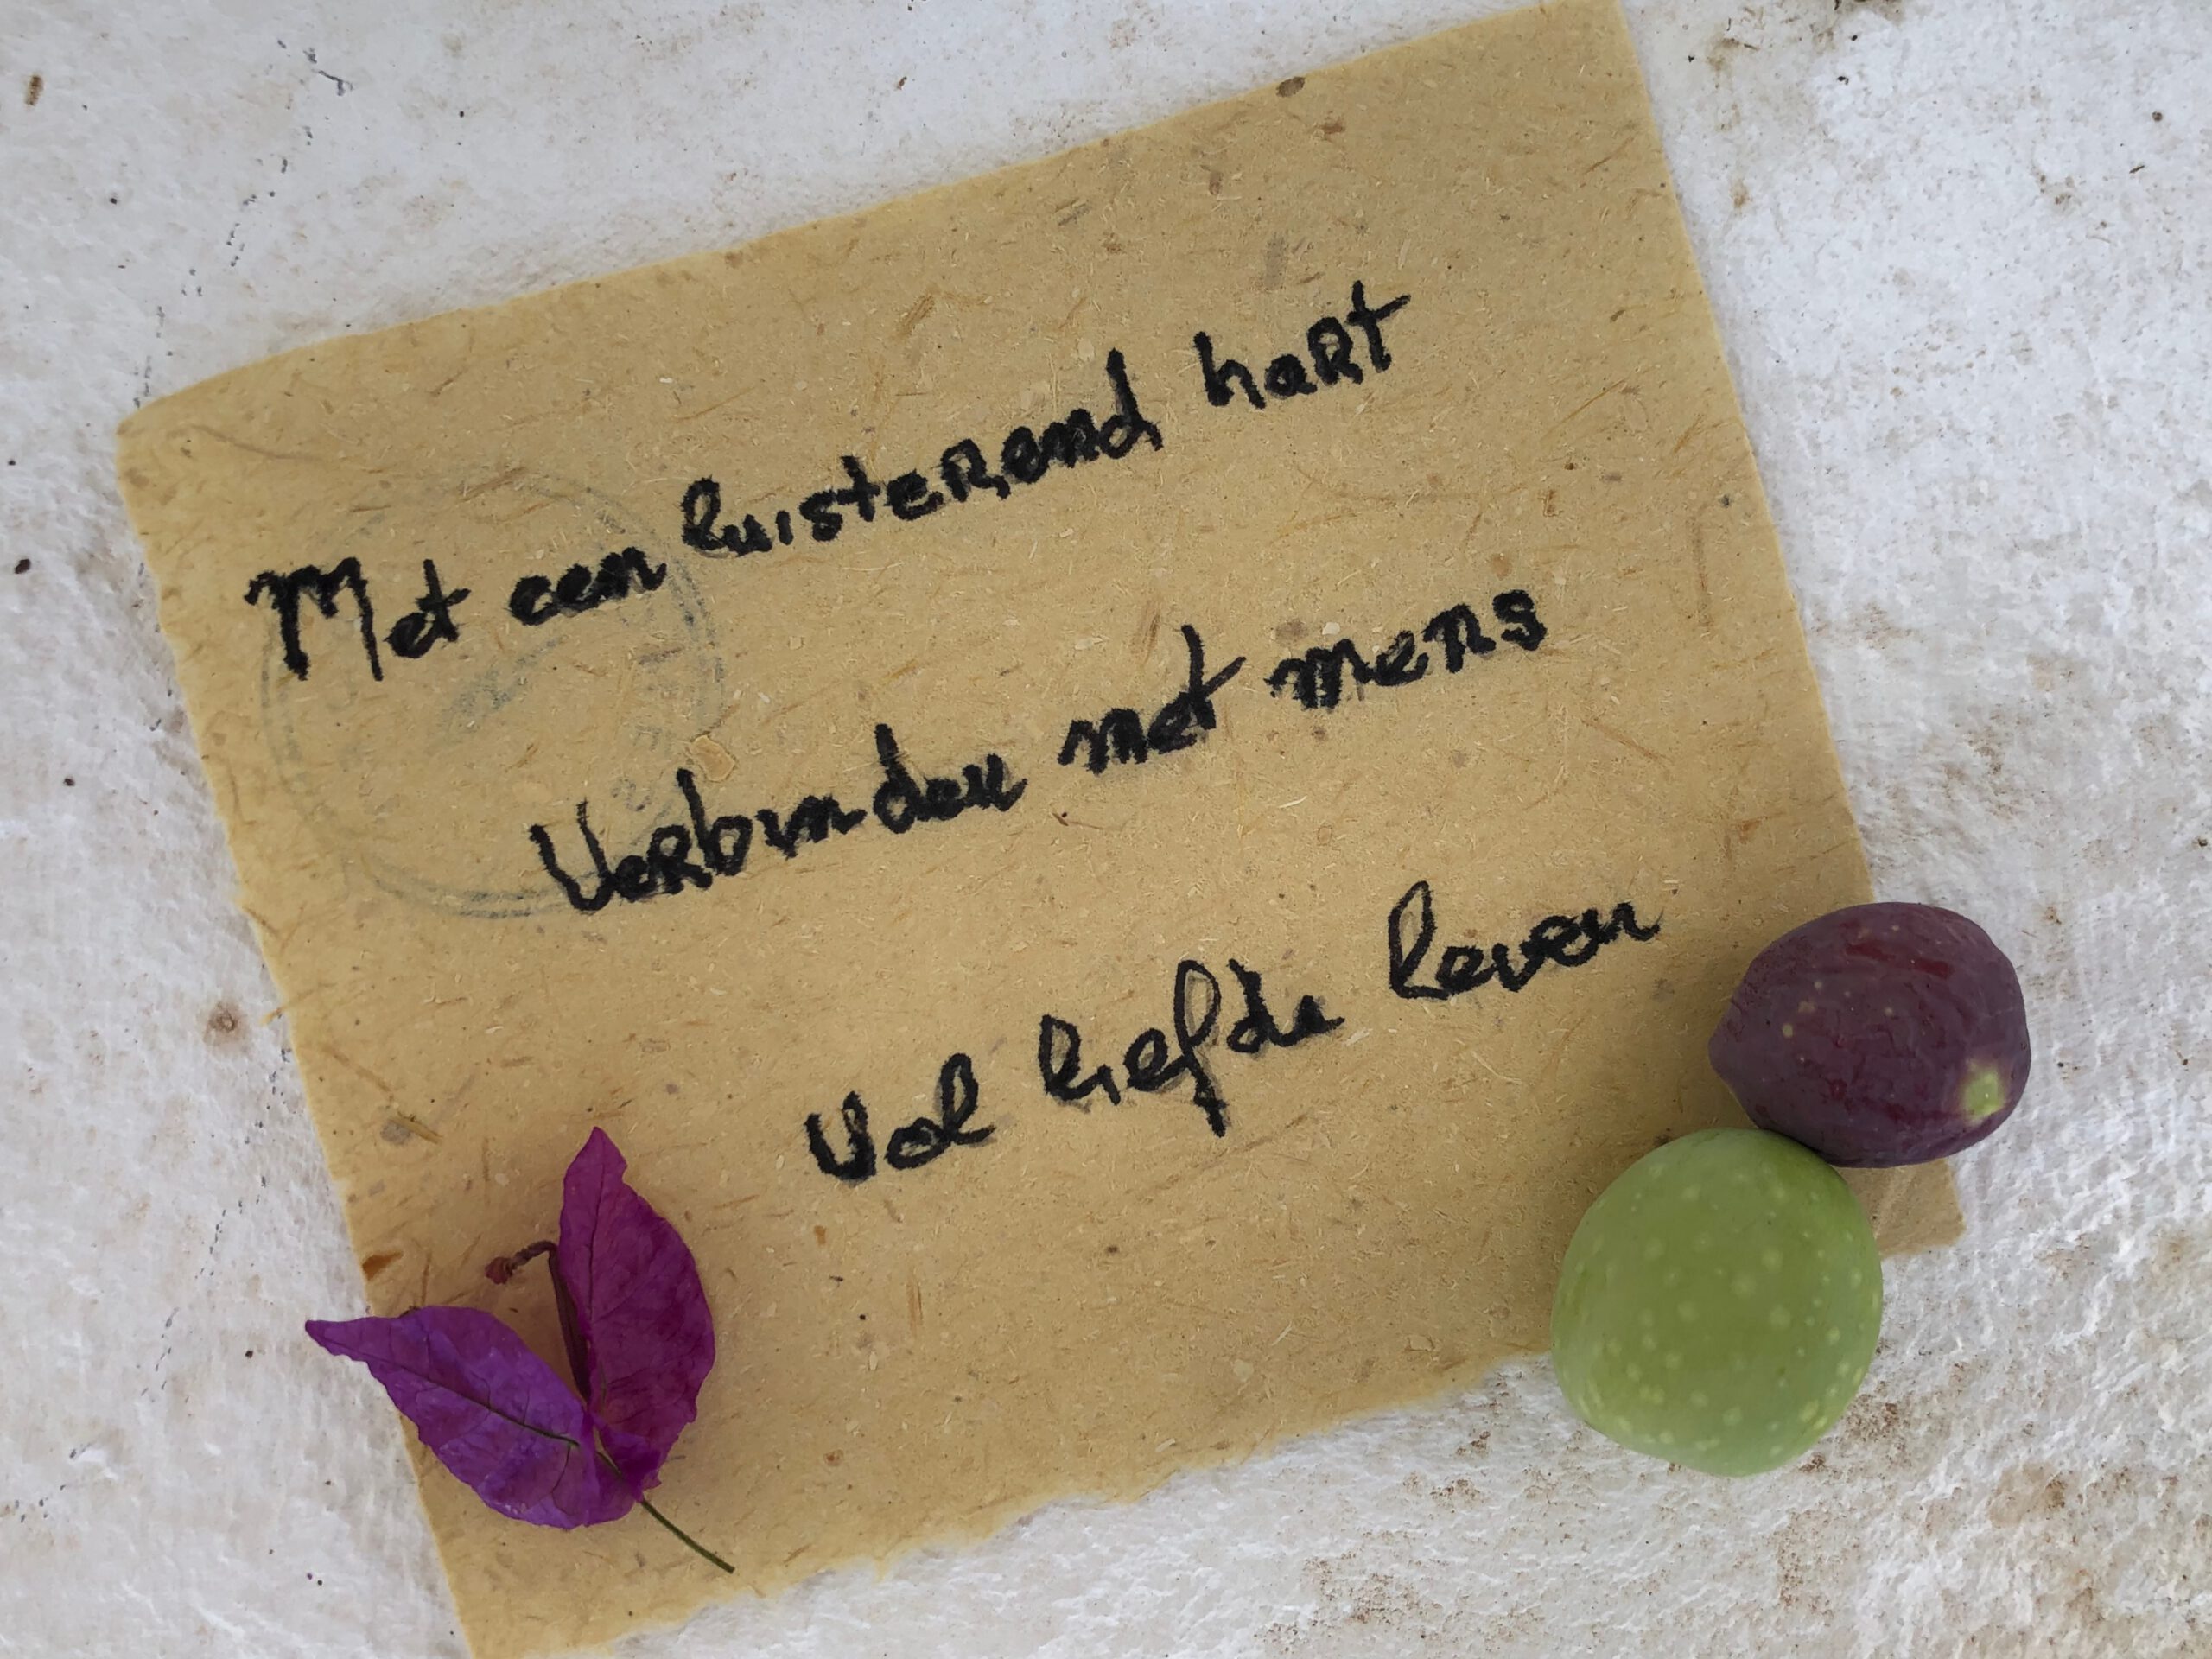 Met een luisterend hart
Verbinden met mens
Vol liefde leven